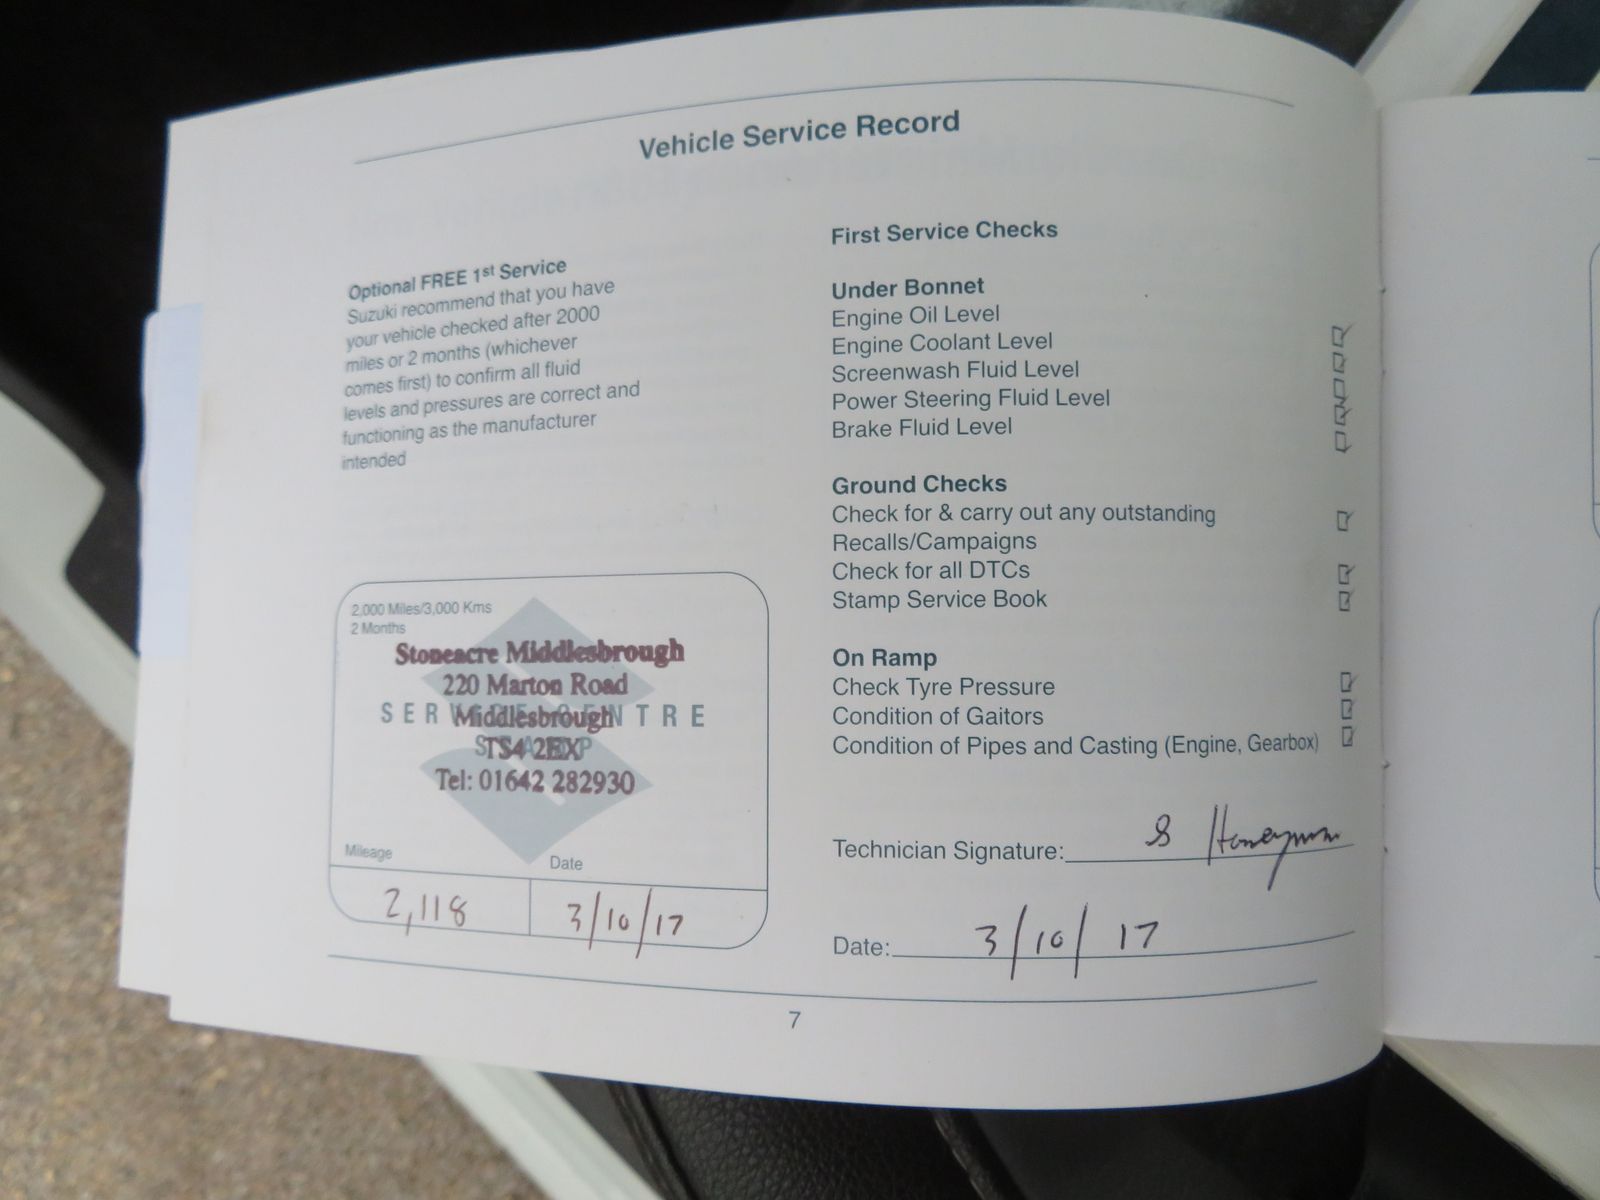 Vehicle Service Record
Optional FREE 1st Service
Suzuki recommend that you have
your vehicle checked after 2000
miles or 2 months (whichever
comes first) to confirm all fluid
levels and pressures are correct and
functioning as the manufacturer
intended
2,000 Miles/3,000 Kms
2 Months
Stoneacre Middlesbrough
220 Marton Road
SERVICE CENTRE
Middlesbrough
STAMP
TS4 2EX
Tel: 01642 282930
Mileage
Date
2,118
3/10/17
First Service Checks
Under Bonnet
Engine Oil Level
Engine Coolant Level
Screenwash Fluid Level
Power Steering Fluid Level
Brake Fluid Level
Ground Checks
Check for & carry out any outstanding
Recalls/Campaigns
Check for all DTCs
Stamp Service Book
On Ramp
Check Tyre Pressure
Condition of Gaitors
Condition of Pipes and Casting (Engine, Gearbox)
Technician Signature: S
Date: 3/10/17
7